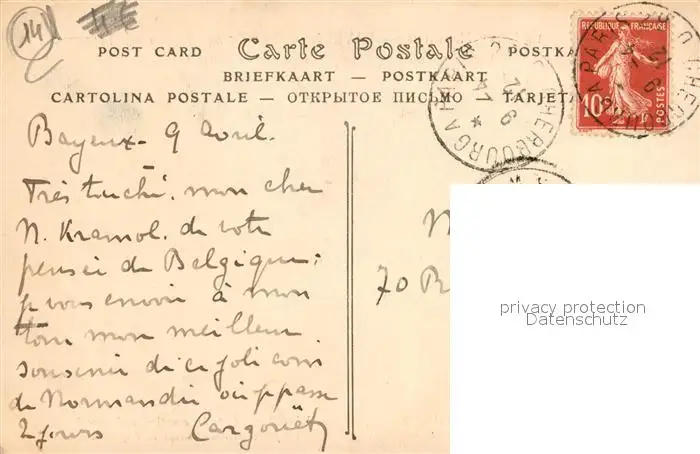 14
POST CARD Carte Postale POSTKA
BRIEFKAART — POSTKAART
CARTOLINA POSTALE — ОТКРЫТОЕ ПИСЬМО — TARJETA
REPUBLIQUE FRANÇAISE
10
POSTES
CHERBOURG A PARIS
Bayeux - 9 Avril.
Très touché, mon cher
M. Kramol. de votre
pensée de Belgique;
je vous envoie à mon
tour mon meilleur
souvenir de ce joli coin
de Normandie où je passe
2 jours Cargouët
70 R
privacy protection
Datenschutz